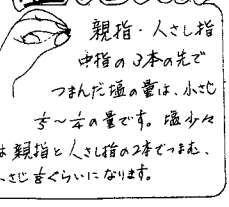 親指・人さし指
中指の3本の先で
つまんだ塩の量は、小さじ
1/5〜1/4の量です。塩少々
は親指と人さし指の2本でつまむ、
小さじ1/8ぐらいになります。